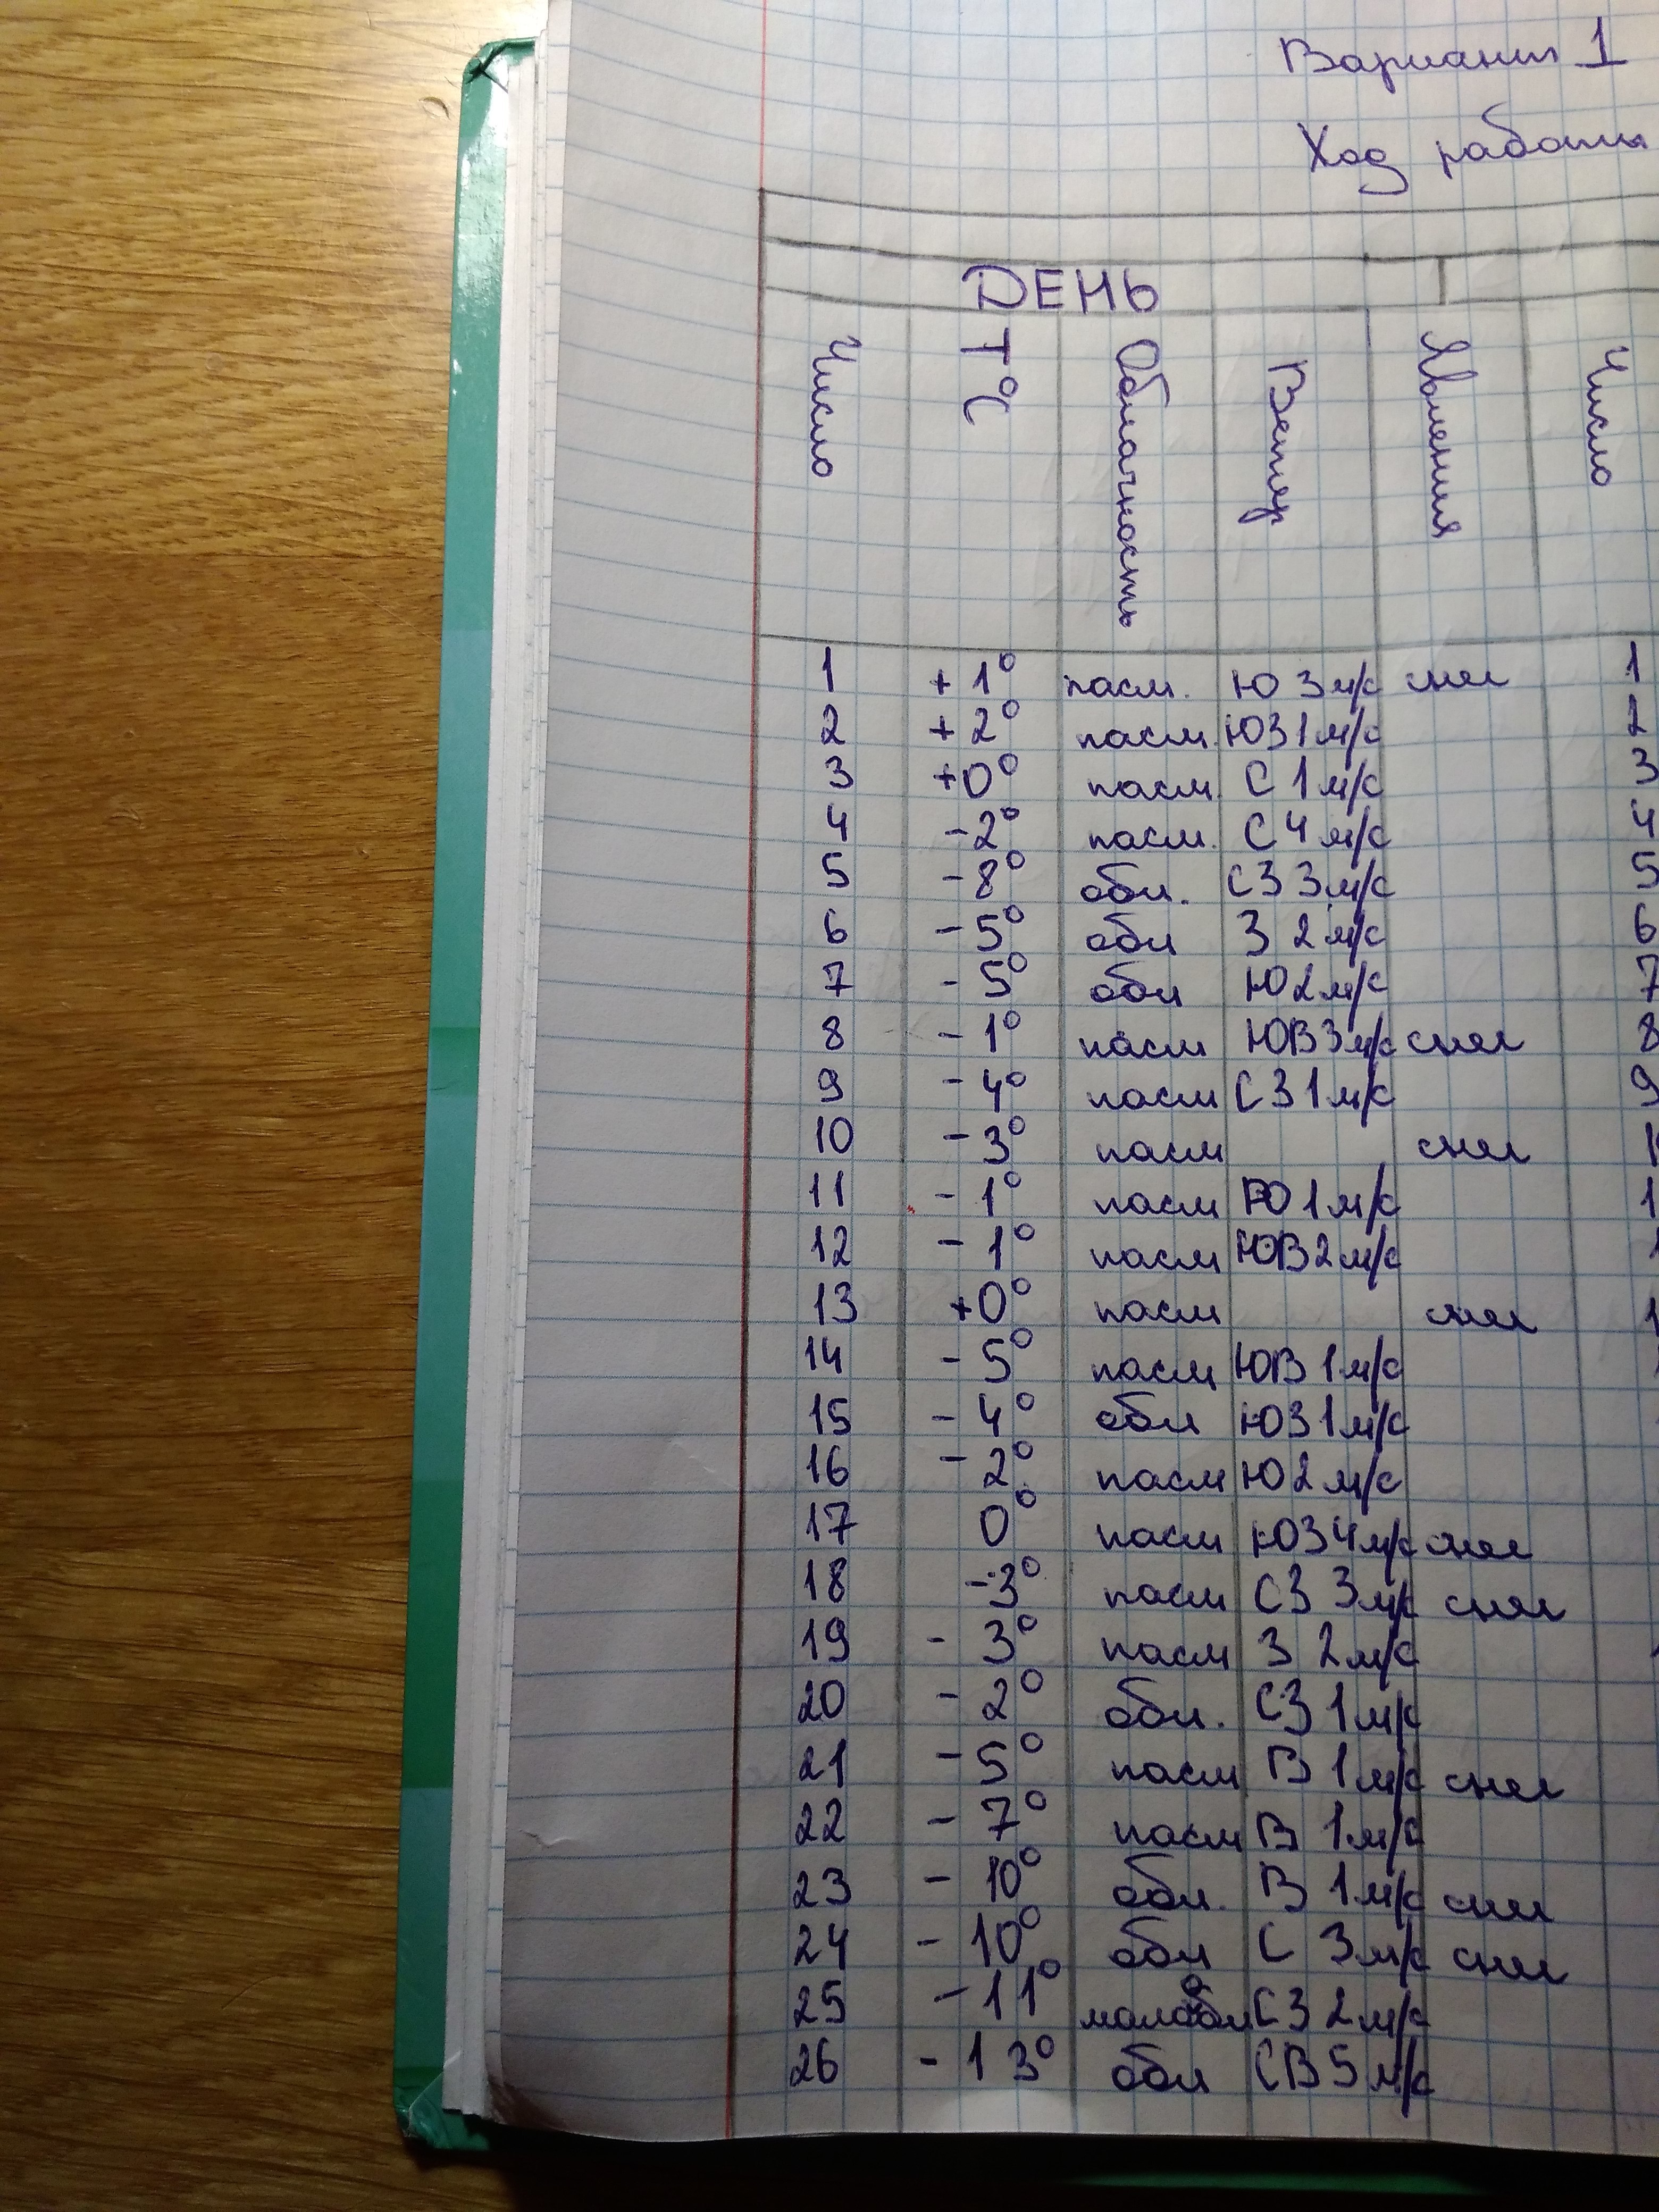 Вариант 1
Ход работы
ДЕНЬ
Число T°C Облачность Ветер Явления Число
1 +1° пасм. Ю 3 м/с снег 1
2 +2° пасм. ЮЗ 1 м/с 2
3 +0° пасм. С 1 м/с 3
4 -2° пасм. С 4 м/с 4
5 -8° обл. СЗ 3 м/с 5
6 -5° обл З 2 м/с 6
7 -5° обл Ю 2 м/с 7
8 -1° пасм ЮВ 3 м/с снег 8
9 -4° пасм СЗ 1 м/с 9
10 -3° пасм снег 1
11 -1° пасм Ю 1 м/с 1
12 -1° пасм ЮВ 2 м/с 1
13 +0° пасм снег 1
14 -5° пасм ЮВ 1 м/с
15 -4° обл ЮЗ 1 м/с
16 -2° пасм Ю 2 м/с
17 0° пасм ЮЗ 4 м/с снег
18 -3° пасм СЗ 3 м/с снег
19 -3° пасм З 2 м/с
20 -2° обл. СЗ 1 м/с
21 -5° пасм В 1 м/с снег
22 -7° пасм В 1 м/с
23 -10° обл. В 1 м/с снег
24 -10° обл С 3 м/с снег
25 -11° малообл СЗ 2 м/с
26 -13° обл СВ 5 м/с